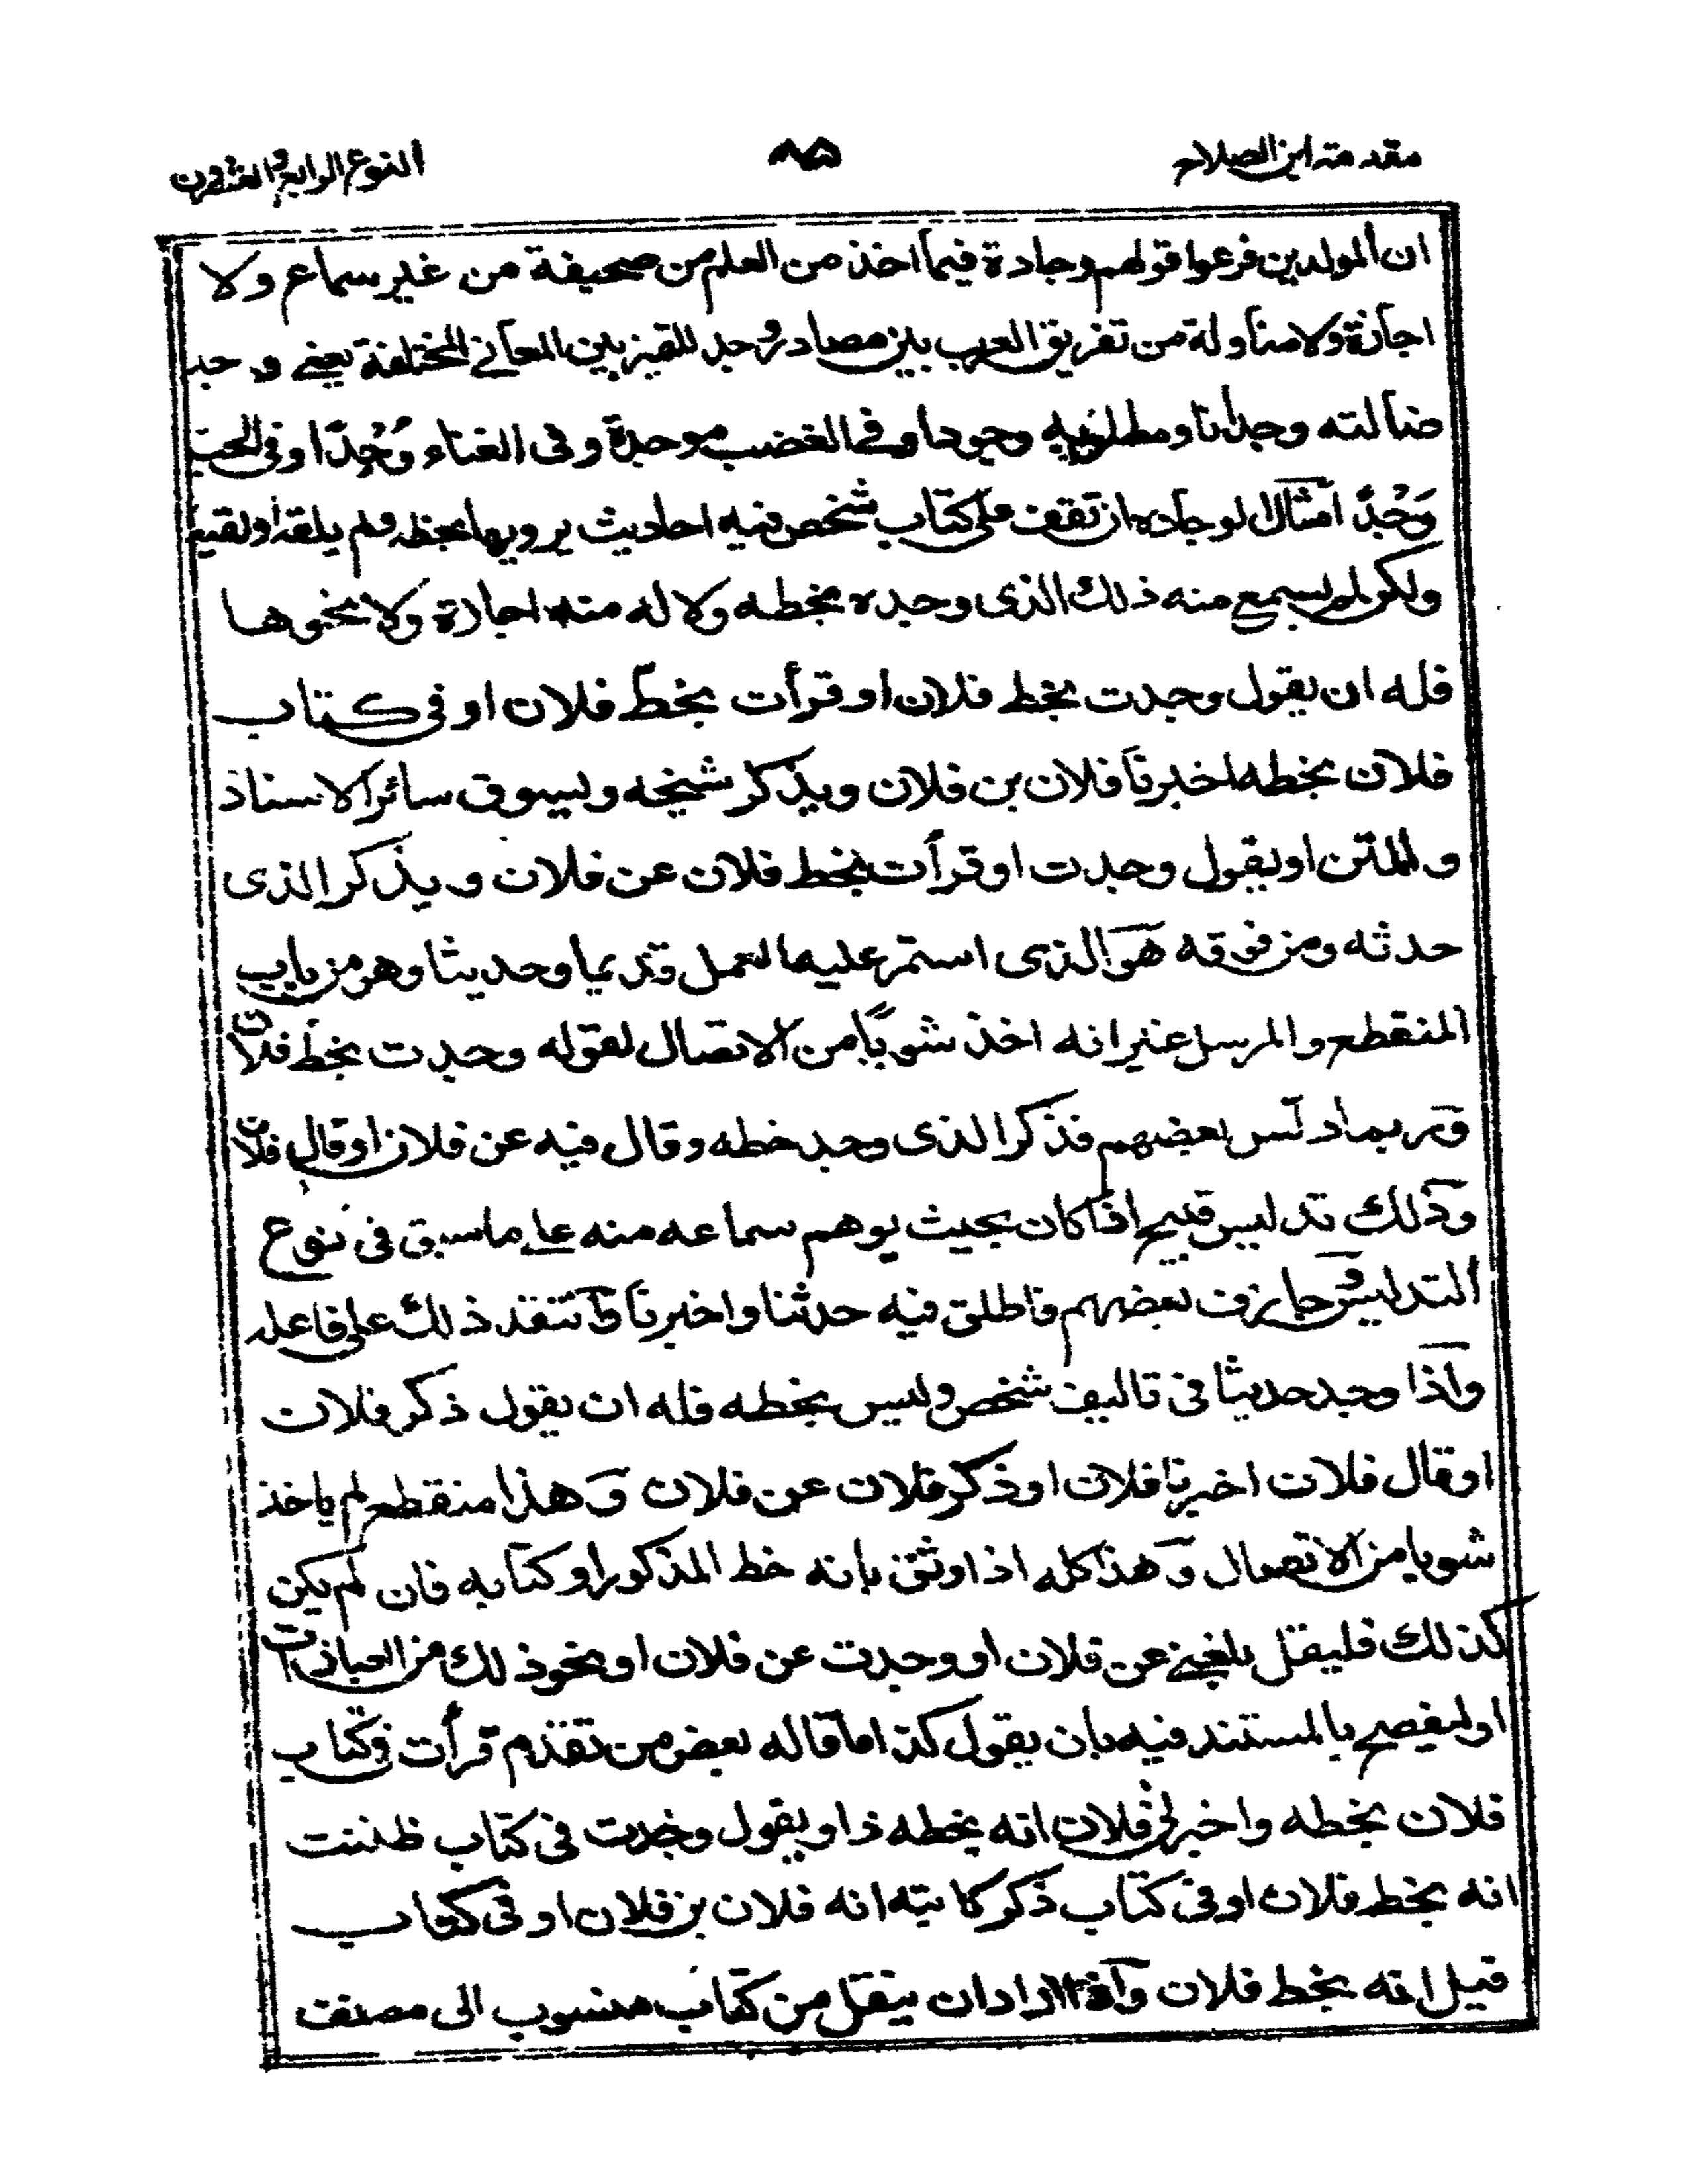 مقدمة ابن الصلاح
٨٥
النوع الرابع والعشرون
ان المولدين فرعوا قولهم وجادة فيما اخذ من العلم من صحيفة من غير سماع ولا
اجازة ولا مناولة من تفريق العرب بين مصادر وجد للتميز بين المعاني المختلفة يعني وجد
ضالته وجدانا ومطلوبه وجودا وفي الغضب موجدة وفي الغناء وُجْدًا وفي الحب
وَجْدًا امثال الوجادة ان تقف على كتاب شخص فيه احاديث يرويها بخطه ولم يلقه او لقيه
ولكن لم يسمع منه ذلك الذى وجده بخطه ولا له منه اجازة ولا نحوها
فله ان يقول وجدت بخط فلان او قرأت بخط فلان او في كتاب
فلان بخطه اخبرنا فلان بن فلان ويذكر شيخه ويسوق سائر الاسناد
والمتن او يقول وجدت او قرأت بخط فلان عن فلان ويذكر الذى
حدثه ومن فوقه هو الذى استمر عليه العمل قديما وحديثا وهو من باب
المنقطع والمرسل غير انه اخذ شوبًا من الاتصال لقوله وجدت بخط فلان
وربما دلس بعضهم فذكر الذى وجد خطه وقال فيه عن فلان او قال فلان
وذلك تدليس قبيح اذا كان بحيث يوهم سماعه منه على ما سبق في نوع
التدليس وجازف بعضهم فاطلق فيه حدثنا واخبرنا وانتقد ذلك على فاعله
واذا وجد حديثا في تاليف شخص وليس بخطه فله ان يقول ذكر فلان
او قال فلان اخبرنا فلان او ذكر فلان عن فلان وهذا منقطع لم ياخذ
شوبا من الاتصال وهذا كله اذا وثق بانه خط المذكور او كتابه فان لم يكن
كذلك فليقل بلغني عن فلان او وجدت عن فلان او نحو ذلك من العبارات
او ليفصح بالمستند فيه بان يقول كذا ما قاله بعض من تقدم قرأت في كتاب
فلان بخطه واخبرني فلان انه بخطه ذا او يقول وجدت في كتاب ظننت
انه بخط فلان او في كتاب ذكر كاتبه انه فلان بن فلان او في كتاب
قيل انه بخط فلان واذا اراد ان ينقل من كتاب منسوب الى مصنف